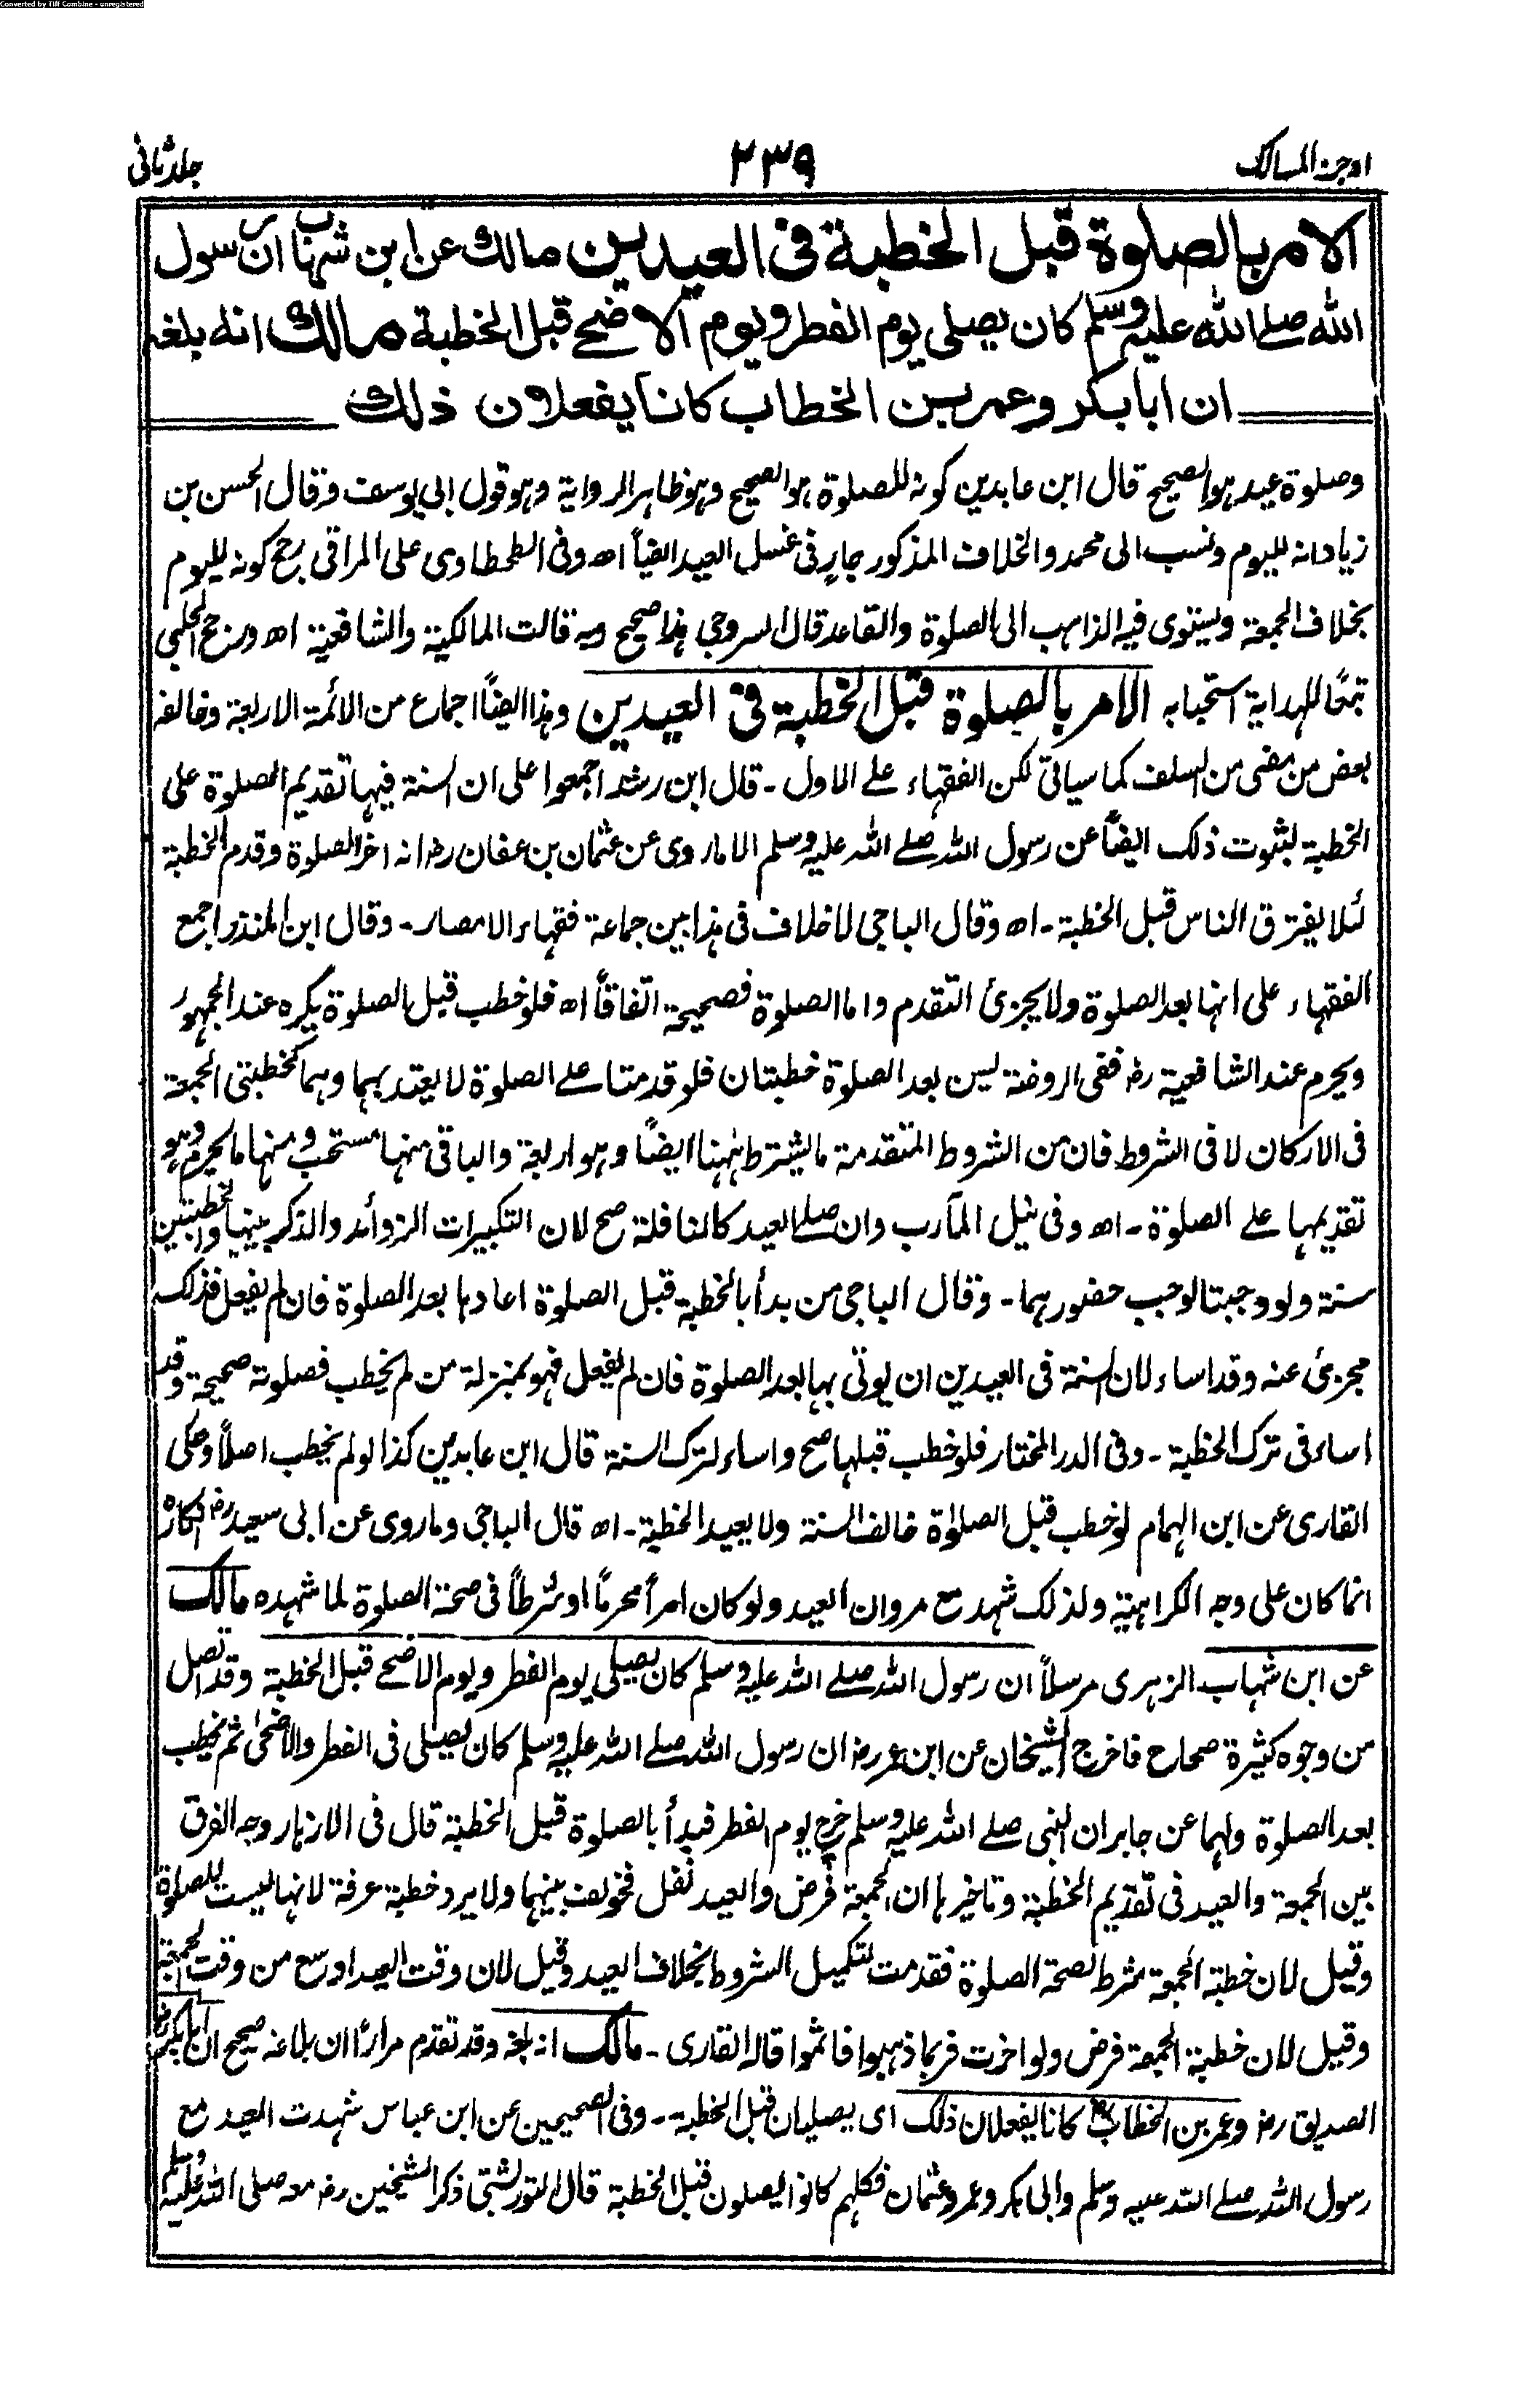 Converted by Tiff Combine - unregistered
اوجز المسالك
٢٣٩
جلد ثانی
الامر بالصلوة قبل الخطبة فى العيدين مالك عن ابن شهاب ان رسول
الله صلے الله عليه وسلم كان يصلى يوم الفطر ويوم الاضحے قبل الخطبة مالك انه بلغه
ان ابا بكر وعمر بن الخطاب كانا يفعلان ذلك
وصلوة عيد هو الصحيح قال ابن عابدين كونه للصلوة هو الصحيح وهو ظاهر الرواية وهو قول ابى يوسف وقال الحسن بن
زياد انه لليوم ونسب الى محمد والخلاف المذكور جار فى غسل العيد ايضاً اھ وفى الطحطاوى على المراقى رجح كونه لليوم
بخلاف الجمعة ويستوى فيه الذاهب الى الصلوة والقاعد قال السروجى هذا صحيح وبه قالت المالكية والشافعية اھ ورجح الحلبى
تبعًا للهداية استحبابه الامر بالصلوة قبل الخطبة فى العيدين وهذا ايضًا اجماع من الائمة الاربعة وخالفه
بعض من مضى من السلف كما سياتى لكن الفقهاء علے الاول - قال ابن رشد اجمعوا على ان السنة فيها تقديم الصلوة على
الخطبة لثبوت ذلك ايضًا عن رسول الله صلے الله عليه وسلم الا ما روى عن عثمان بن عفان رضـ انه اخر الصلوة وقدم الخطبة
لئلا يفترق الناس قبل الخطبة - اھ وقال الباجى لا خلاف فى هذا بين جماعة فقهاء الامصار - وقال ابن المنذر اجمع
الفقهاء على انها بعد الصلوة ولا يجزئ التقدم واما الصلوة فصحيحة اتفاقاً اھ فلو خطب قبل الصلوة يكره عند الجمهور
ويحرم عند الشافعية رضـ ففى الروضة ليس بعد الصلوة خطبتان فلو قدمتا علے الصلوة لا يعتد بهما وهما كخطبتى الجمعة
فى الاركان لا فى الشروط فان من الشروط المتقدمة ما يشترط ههنا ايضًا وهو اربعة والباقى منها مستحب ومنها ما يحرم وهو
تقديمها علے الصلوة - اھ وفى نيل المآرب وان صلے العيد كالنافلة صح لان التكبيرات الزوائد والذكر بينها والخطبتين
سنة ولو وجبتا لوجب حضورهما - وقال الباجى من بدأ بالخطبة قبل الصلوة اعادها بعد الصلوة فان لم يفعل فذلك
مجزئ عنه وقد اساء لان السنة فى العيدين ان يوتى بها بعد الصلوة فان لم يفعل فهو بمنزلة من لم يخطب فصلوته صحيحة وقد
اساء فى ترك الخطبة - وفى الدر المختار فلو خطب قبلها صح واساء لترك السنة قال ابن عابدين كذا لو لم يخطب اصلاً وحكى
القارى عن ابن الهمام لو خطب قبل الصلوٰة خالف السنة ولا يعيد الخطبة - اھ قال الباجى وما روى عن ابى سعيد رضـ انكاره
انما كان على وجه الكراهية ولذلك شهد مع مروان العيد ولو كان امرأ محرمًا او شرطاً فى صحة الصلوة لما شهده مالك
عن ابن شهاب الزهرى مرسلاً ان رسول الله صلے الله عليه وسلم كان يصلى يوم الفطر ويوم الاضحے قبل الخطبة وقد اتصل
من وجوه كثيرة صحاح فاخرج الشيخان عن ابن عمر رضـ ان رسول الله صلے الله عليه وسلم كان يصلى فى الفطر والاضحىٰ ثم يخطب
بعد الصلوة ولهما عن جابر ان النبى صلے الله عليه وسلم خرج يوم الفطر فبدأ بالصلوة قبل الخطبة قال فى الازهار وجه الفرق
بين الجمعة والعيد فى تقديم الخطبة وتاخيرها ان الجمعة فرض والعيد نفل فخولف بينهما ولا يرد خطبة عرفة لانها ليست للصلوة
وقيل لان خطبة الجمعة شرط لصحة الصلوة فقدمت لتكميل الشروط بخلاف العيد وقيل لان وقت العيد اوسع من وقت الجمعة
وقيل لان خطبة الجمعة فرض ولو اخرت فربما ذهبوا فاثموا قاله القارى - مالك انه بلغه وقد تقدم مرارًا ان بلاغه صحيح ان ابا بكر
الصديق رضـ وعمر بن الخطاب رضـ كانا يفعلان ذلك اى يصليان قبل الخطبة -- وفى الصحيحين عن ابن عباس شهدت العيد مع
رسول الله صلے الله عليه وسلم وابى بكر وعمر وعثمان فكلهم كانوا يصلون قبل الخطبة قال التورپشتى ذكر الشيخين رضـ معه صلى الله عليه وسلم